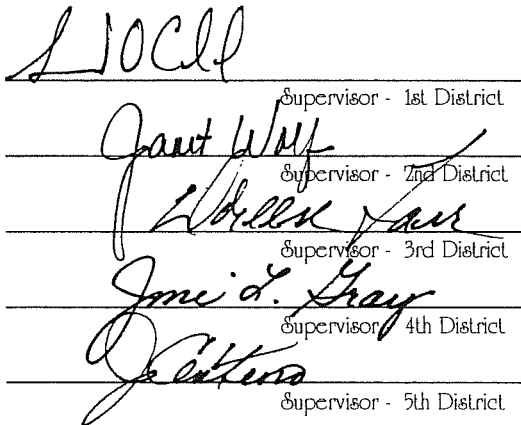 Supervisor - 1st District
Janet Wolf
Supervisor - 2nd District
Doreen Farr
Supervisor - 3rd District
Joni L. Gray
Supervisor - 4th District
Supervisor - 5th District